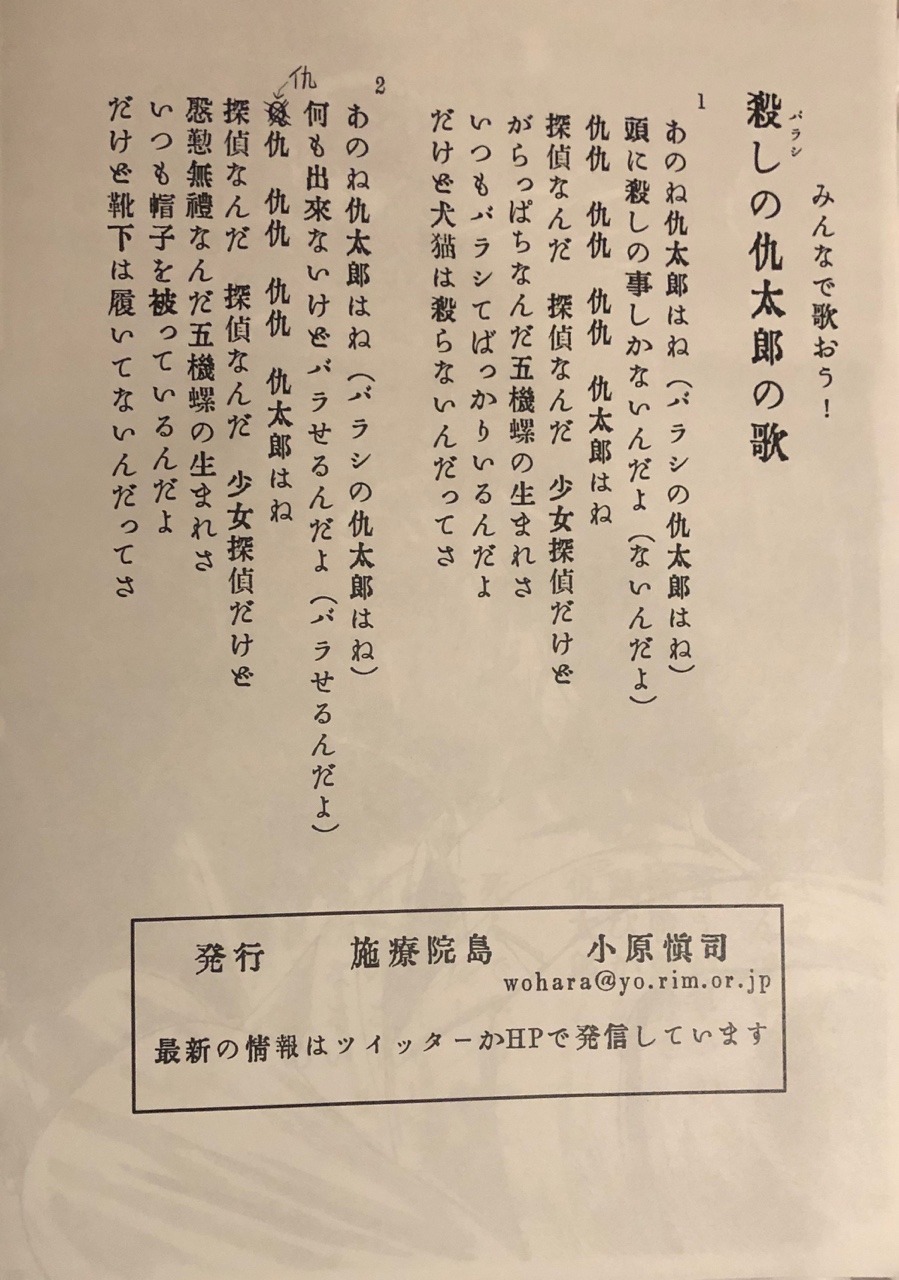 みんなで歌おう！
殺しの仇太郎の歌
バラシ
1
あのね仇太郎はね（バラシの仇太郎はね）
頭に殺しの事しかないんだよ（ないんだよ）
仇仇　仇仇　仇仇　仇太郎はね
探偵なんだ　探偵なんだ　少女探偵だけど
がらっぱちなんだ五機螺の生まれさ
いつもバラシてばっかりいるんだよ
だけど犬猫は殺らないんだってさ
2
あのね仇太郎はね（バラシの仇太郎はね）
何も出來ないけどバラせるんだよ（バラせるんだよ）
仇
仇　仇仇　仇仇　仇太郎はね
探偵なんだ　探偵なんだ　少女探偵だけど
慇懃無禮なんだ五機螺の生まれさ
いつも帽子を被っているんだよ
だけど靴下は履いてないんだってさ
発行　施療院島　小原愼司
wohara@yo.rim.or.jp
最新の情報はツイッターかHPで発信しています